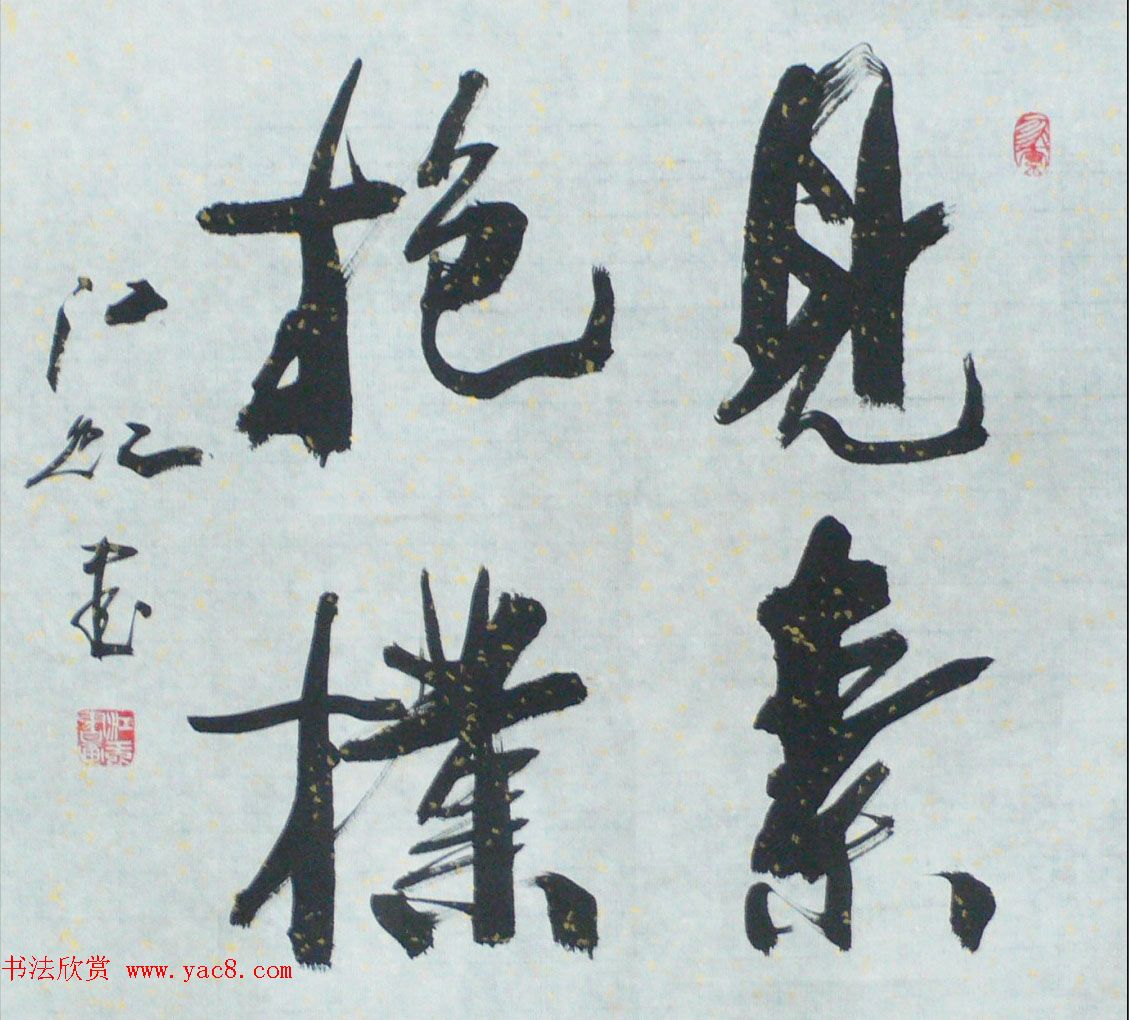 見素
抱樸
江
書
书法欣赏 www.yac8.com